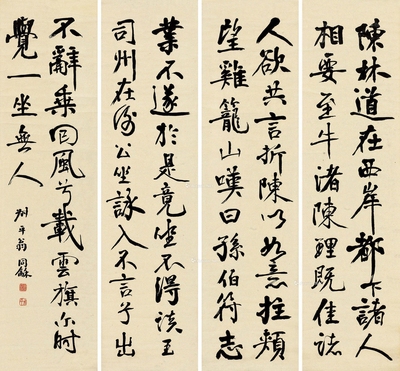 陳林道在西岸都下諸人
相要至牛渚陳理既佳諸
人欲共言折陳以如意拄頰
望雞籠山嘆曰孫伯符志
業不遂於是竟坐不得談王
司州在謝公坐詠入不言兮出
不辭乘回風兮載雲旗爾時
覺一坐無人
叔平翁同龢